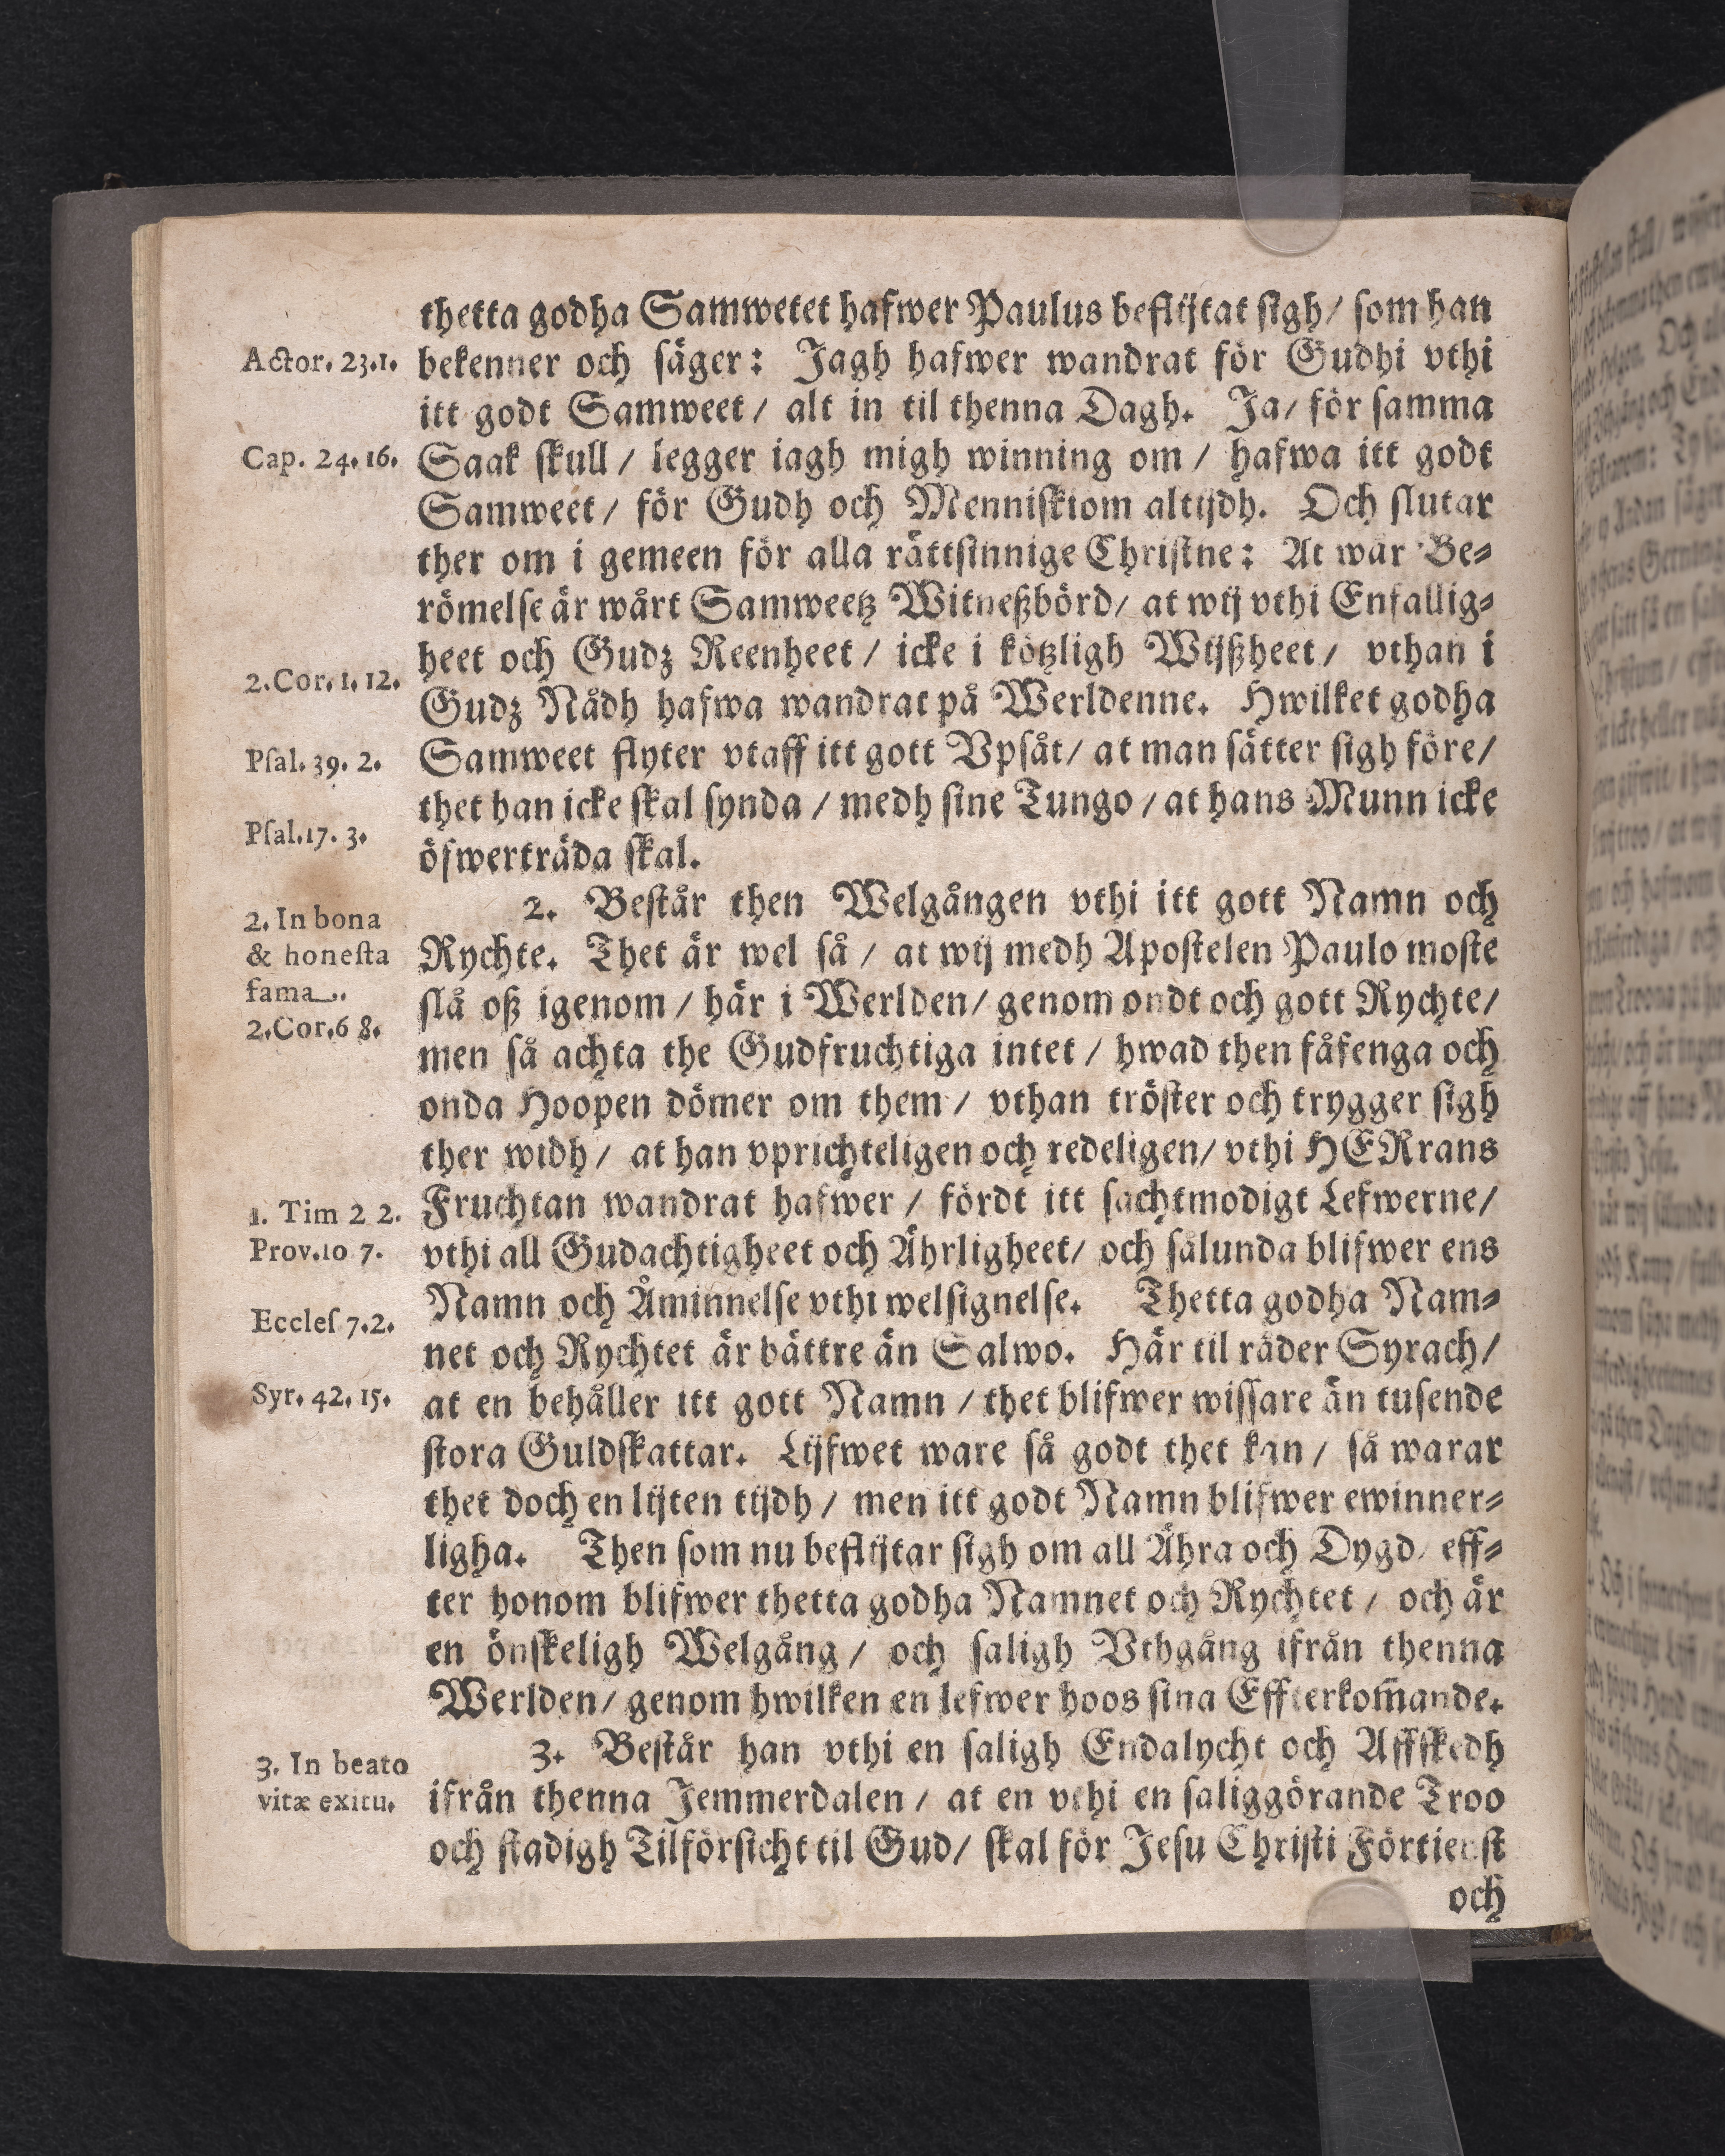 thetta godha Samwetet hafwer Paulus beflijtat sigh / som han
Actor. 23.1.
bekenner och säger: Jagh hafwer wandrat för Gudhi vthi
itt godt Samweet / alt in til thenna Dagh. Ja / för samma
Cap. 24.16.
Saak skull / legger iagh migh winning om / hafwa itt godt
Samweet / för Gudh och Menniskiom altijdh. Och slutar
ther om i gemeen för alla rättsinnige Christne: At wår Be-
römelse är wårt Samweetz Witneßbörd / at wij vthi Enfallig-
heet och Gudz Reenheet / icke i kötzligh Wijßheet / vthan i
2.Cor. 1. 12.
Gudz Nådh hafwa wandrat på Werldenne. Hwilket godha
Psal. 39. 2.
Samweet flyter vtaff itt gott Vpsåt / at man sätter sigh före /
thet han icke skal synda / medh sine Tungo / at hans Munn icke
Psal.17. 3.
öfwerträda skal.
2. In bona
& honesta
fama.
2.Cor.6 8.
2. Består then Welgången vthi itt gott Namn och
Rychte. Thet är wel så / at wij medh Apostelen Paulo moste
slå oß igenom / här i Werlden / genom ondt och gott Rychte /
men så achta the Gudfruchtiga intet / hwad then fåfenga och
onda Hoopen dömer om them / vthan tröster och trygger sigh
ther widh / at han vprichteligen och redeligen / vthi HERrans
1. Tim 2 2.
Fruchtan wandrat hafwer / fördt itt sachtmodigt Lefwerne /
Prov.10 7.
vthi all Gudachtigheet och Ährligheet / och sålunda blifwer ens
Namn och Åminnelse vthi welsignelse. Thetta godha Nam-
Eccles 7.2.
net och Rychtet är bättre än Salwo. Här til råder Syrach /
Syr. 42. 15.
at en behåller itt gott Namn / thet blifwer wissare än tusende
stora Guldskattar. Lijfwet ware så godt thet kan / så warar
thet doch en lijten tijdh / men itt godt Namn blifwer ewinner-
ligha. Then som nu beflijtar sigh om all Ähra och Dygd / eff-
ter honom blifwer thetta godha Namnet och Rychtet / och är
en önskeligh Welgång / och saligh Vthgång ifrån thenna
Werlden / genom hwilken en lefwer hoos sina Effterkom̃ande.
3. In beato
vitæ exitu.
3. Består han vthi en saligh Endalycht och Affskedh
ifrån thenna Jemmerdalen / at en vthi en saliggörande Troo
och stadigh Tilförsicht til Gud / skal för Jesu Christi Förtienst
och